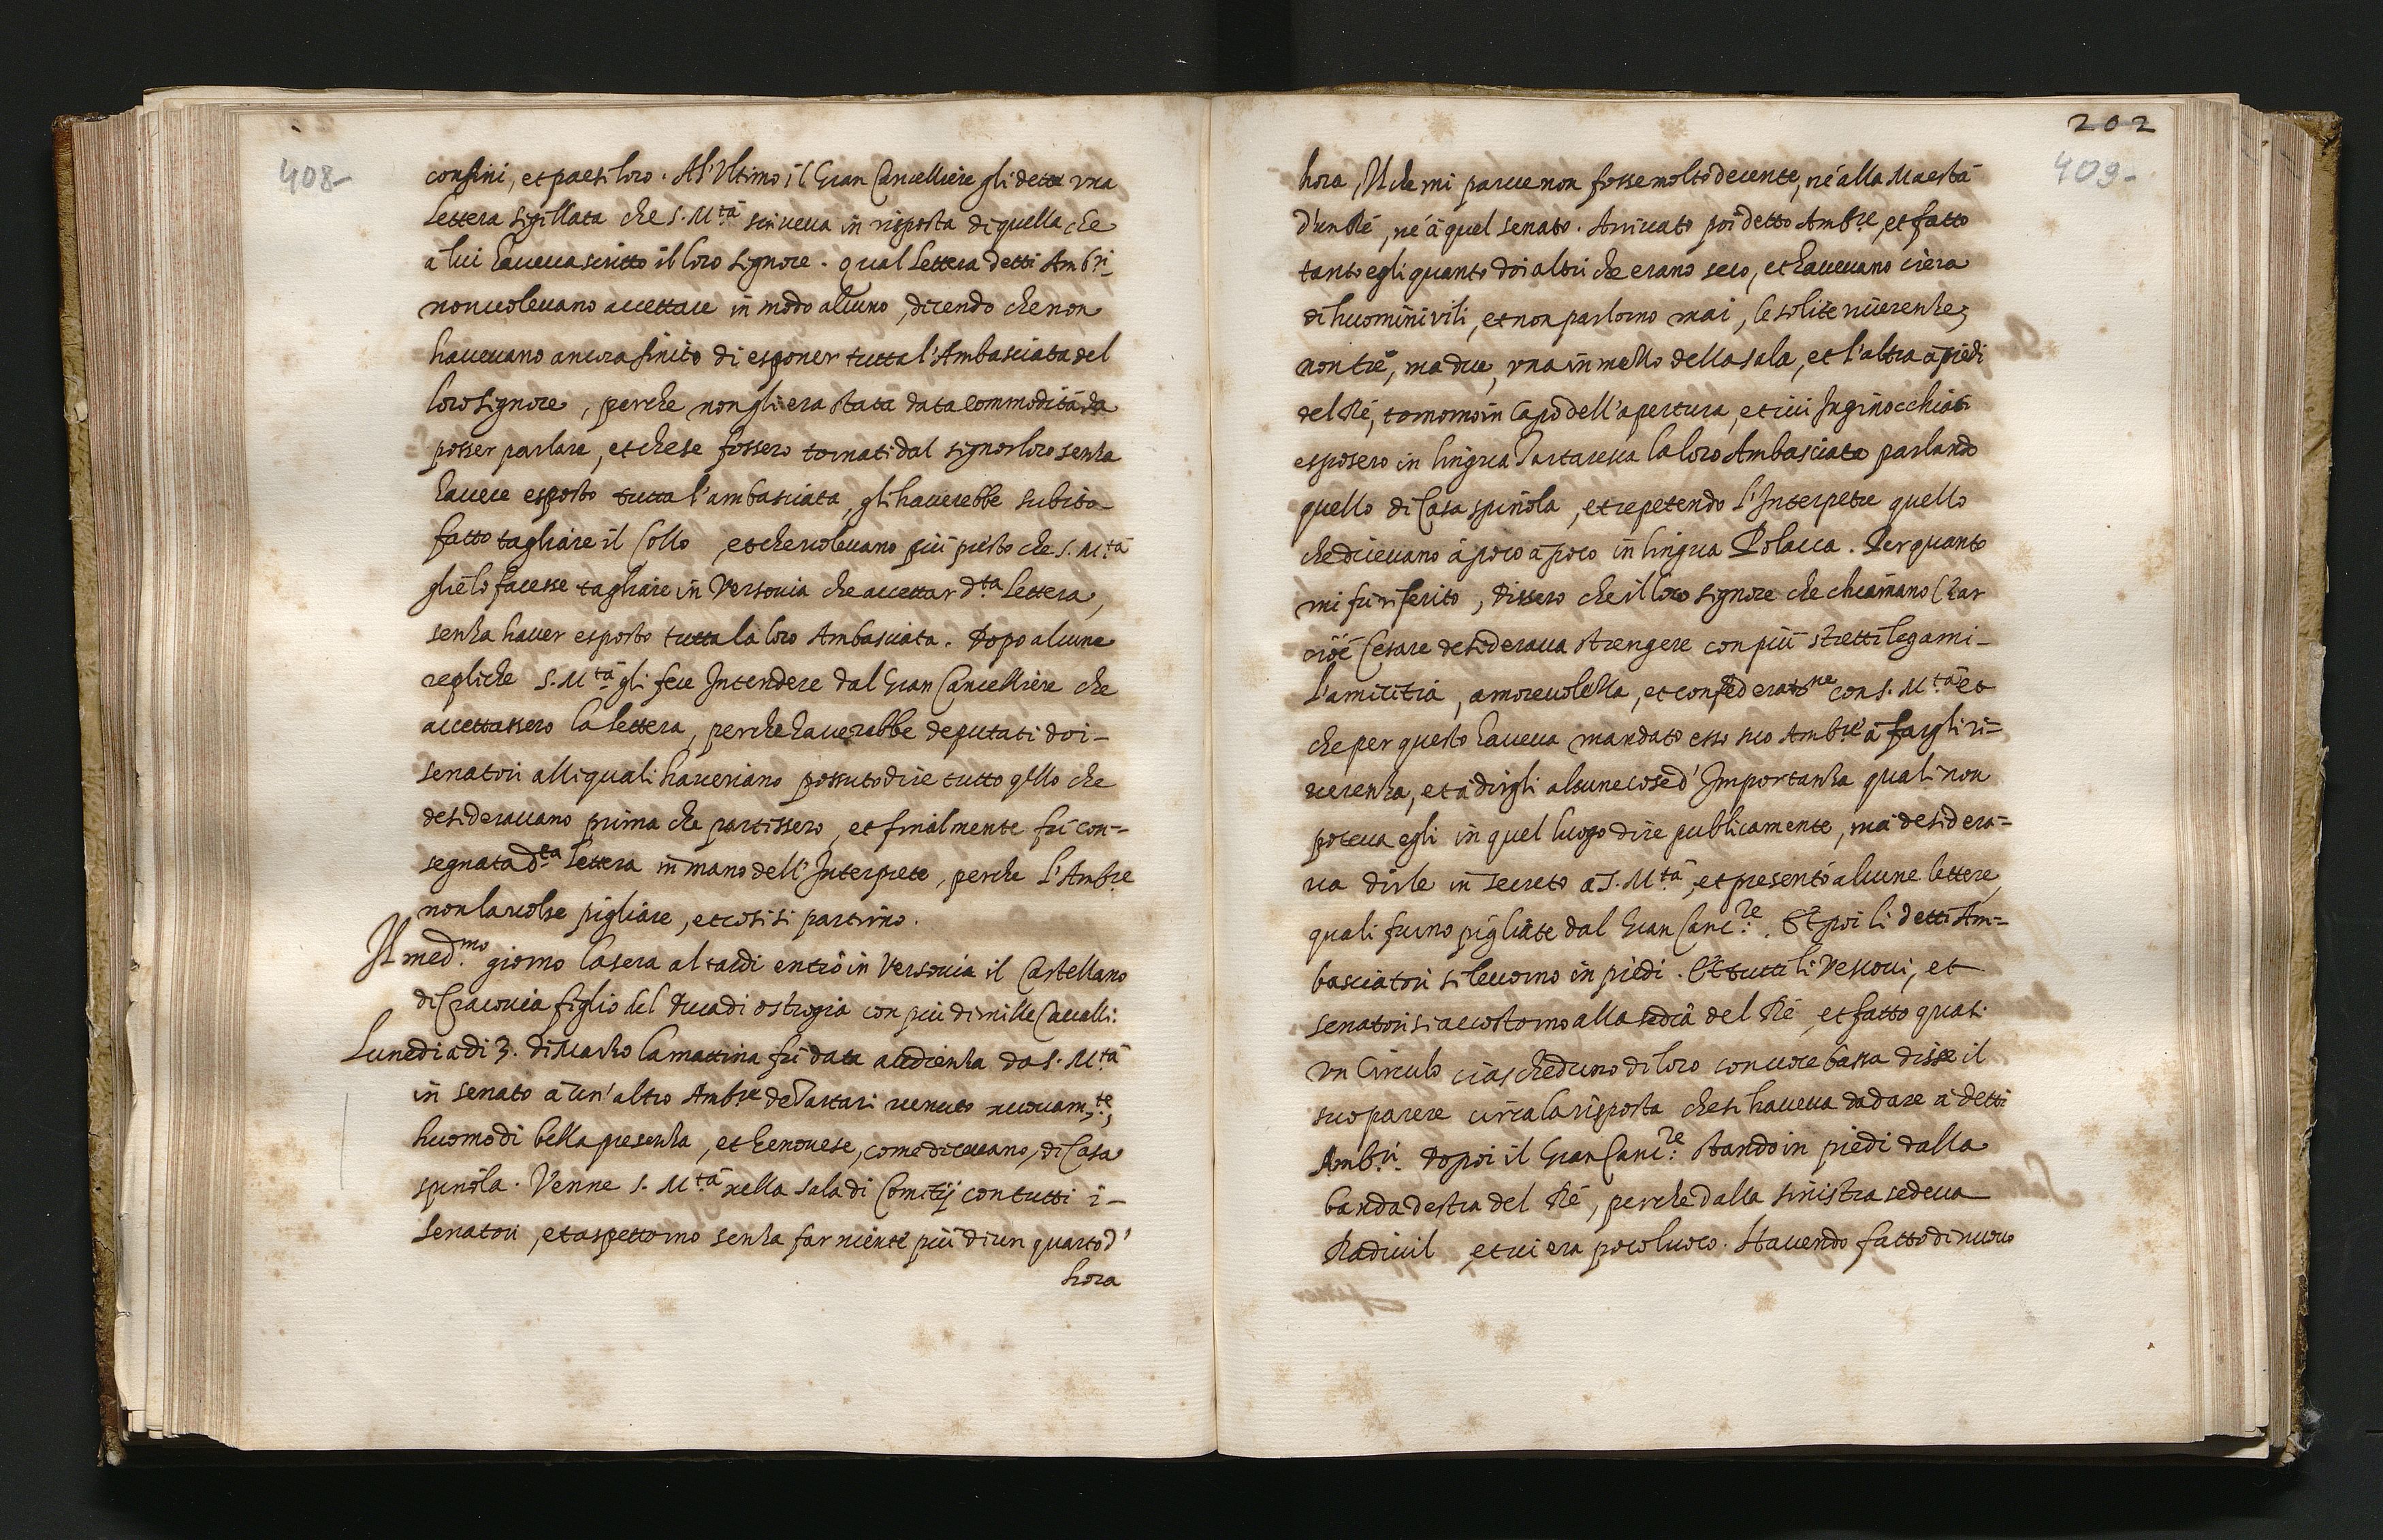 408-
confini, et paesi loro. All'Vltimo il Gran Cancelliere gli dette vna
lettera sigillata che S. M.tà scriueua in risposta di quella che
à lui haueua scritto il loro Signore. qual lettera detti Amb.ri
non uoleuano accettare in modo alcuno, dicendo che non
haueuano ancora finito di esponer tutta l'Ambasciata del
loro Signore, perche non gli era stata data commodità da
posser parlare, et che se fossero tornati dal Signor loro senza
hauere esposto tutta l'ambasciata, gli hauerebbe subito
fatto tagliare il Collo, et che uoleuano più presto che S. M.tà
glielo facesse tagliare in Versouia che accettar d.ta lettera,
senza hauer esposto tutta la loro Ambasciata. Dopo alcune
repliche S. M.tà gli fece Intendere dal Gran Cancelliere che
accettassero la lettera, perche hauerebbe deputati doi-
senatori alli quali haueriano possuto dire tutto q̃llo che
desiderauano prima che partissero, et finalmente fù con=
segnata d.ta lettera in mano dell'Interprete, perche l'Amb.re
non la uolse pigliare, et cosi si partirno.
Il med.mo giorno la sera al tardi entrò in Versouia il Castellano
di Cracouia figlio del Duca di ostrogia con più di mille Caualli:
Lunedi a di 3. di Marzo la mattina fù data audienza da S. M.tà
in senato à un'altro Amb.re de Tartari uenuto nuouam.te,
huomo di bella presenza, et Genouese, come diceuano, di Casa
spinola. Venne S. M.tà nella sala di Comitij con tutti i-
senatori, et aspettorno senza far niente più di un quarto d'
hora
202
409-
hora, Il che mi parue non fosse molto decente, nè alla Maestà
d'un Rè, nè à quel senato. Arriuato poi detto Amb.re, et fatto
tanto egli quanto doi altri che erano seco, et haueuano ciera
di huomini vili, et non parlorno mai, le solite riuerenze,
non trè, ma due, vna in mezzo della sala, et l'altra à piedi
del Rè, tornorno in Capo dell'apertura, et iui Inginocchiati
esposero in lingua Tartaresca la loro Ambasciata parlando
quello di Casa spinola, et repetendo l'Interpetre quello
che diceuano à poco à poco in lingua Polacca. Per quanto
mi fù riferito, dissero che il loro Signore che chiamano Czar
cioè Cesare desideraua strengere con più stretti legami-
l'amicitia, amoreuolezza, et confederato.ne con S. M.tà et
che per questo haueua mandato esso suo Amb.re à fargli ri=
uerenza, et à dirgli alcune cose d'Importanza quali non
poteua egli in quel luogo dire publicamente, mà desidera=
ua dirle in secreto à S. M.tà, et presentò alcune lettere,
quali furno pigliate dal Gran Canc.re. Et poi li detti Am=
basciatori si leuorno in piedi. Et tutti li Vescoui, et
senatori si accostorno alla sedia del Rè, et fatto quasi
vn Circulo ciascheduno di loro con uoce bassa disse il
suo parere circa la risposta che si haueua da dare à detti
Amb.ri. Dopoi il Gran Canc.re stando in piedi dalla
banda destra del Rè, perche dalla sinistra sedeua
Radiuil, et ui era poco luoco. Hauendo fatto di nuouo